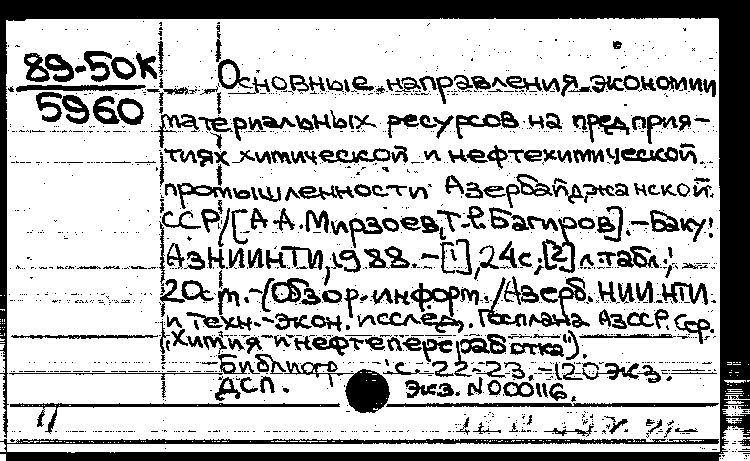 89-50К
5960
Основные направления экономии
материальных ресурсов на предприя-
тиях химической и нефтехимической
промышленности Азербайджанской
ССР/[А.А.Мирзоев,Т.Р.Багиров].-Баку:
АзНИИНТИ,1988.-[1],24с,[2]л.табл.;
20см.-(Обзор.информ./Азерб.НИИНТИ
и техн.-экон.исслед. Госплана АзССР.Сер.
"Химия и нефтепереработка").
Библиогр с.22-23.-120экз.
ДСП. Экз.N000116.